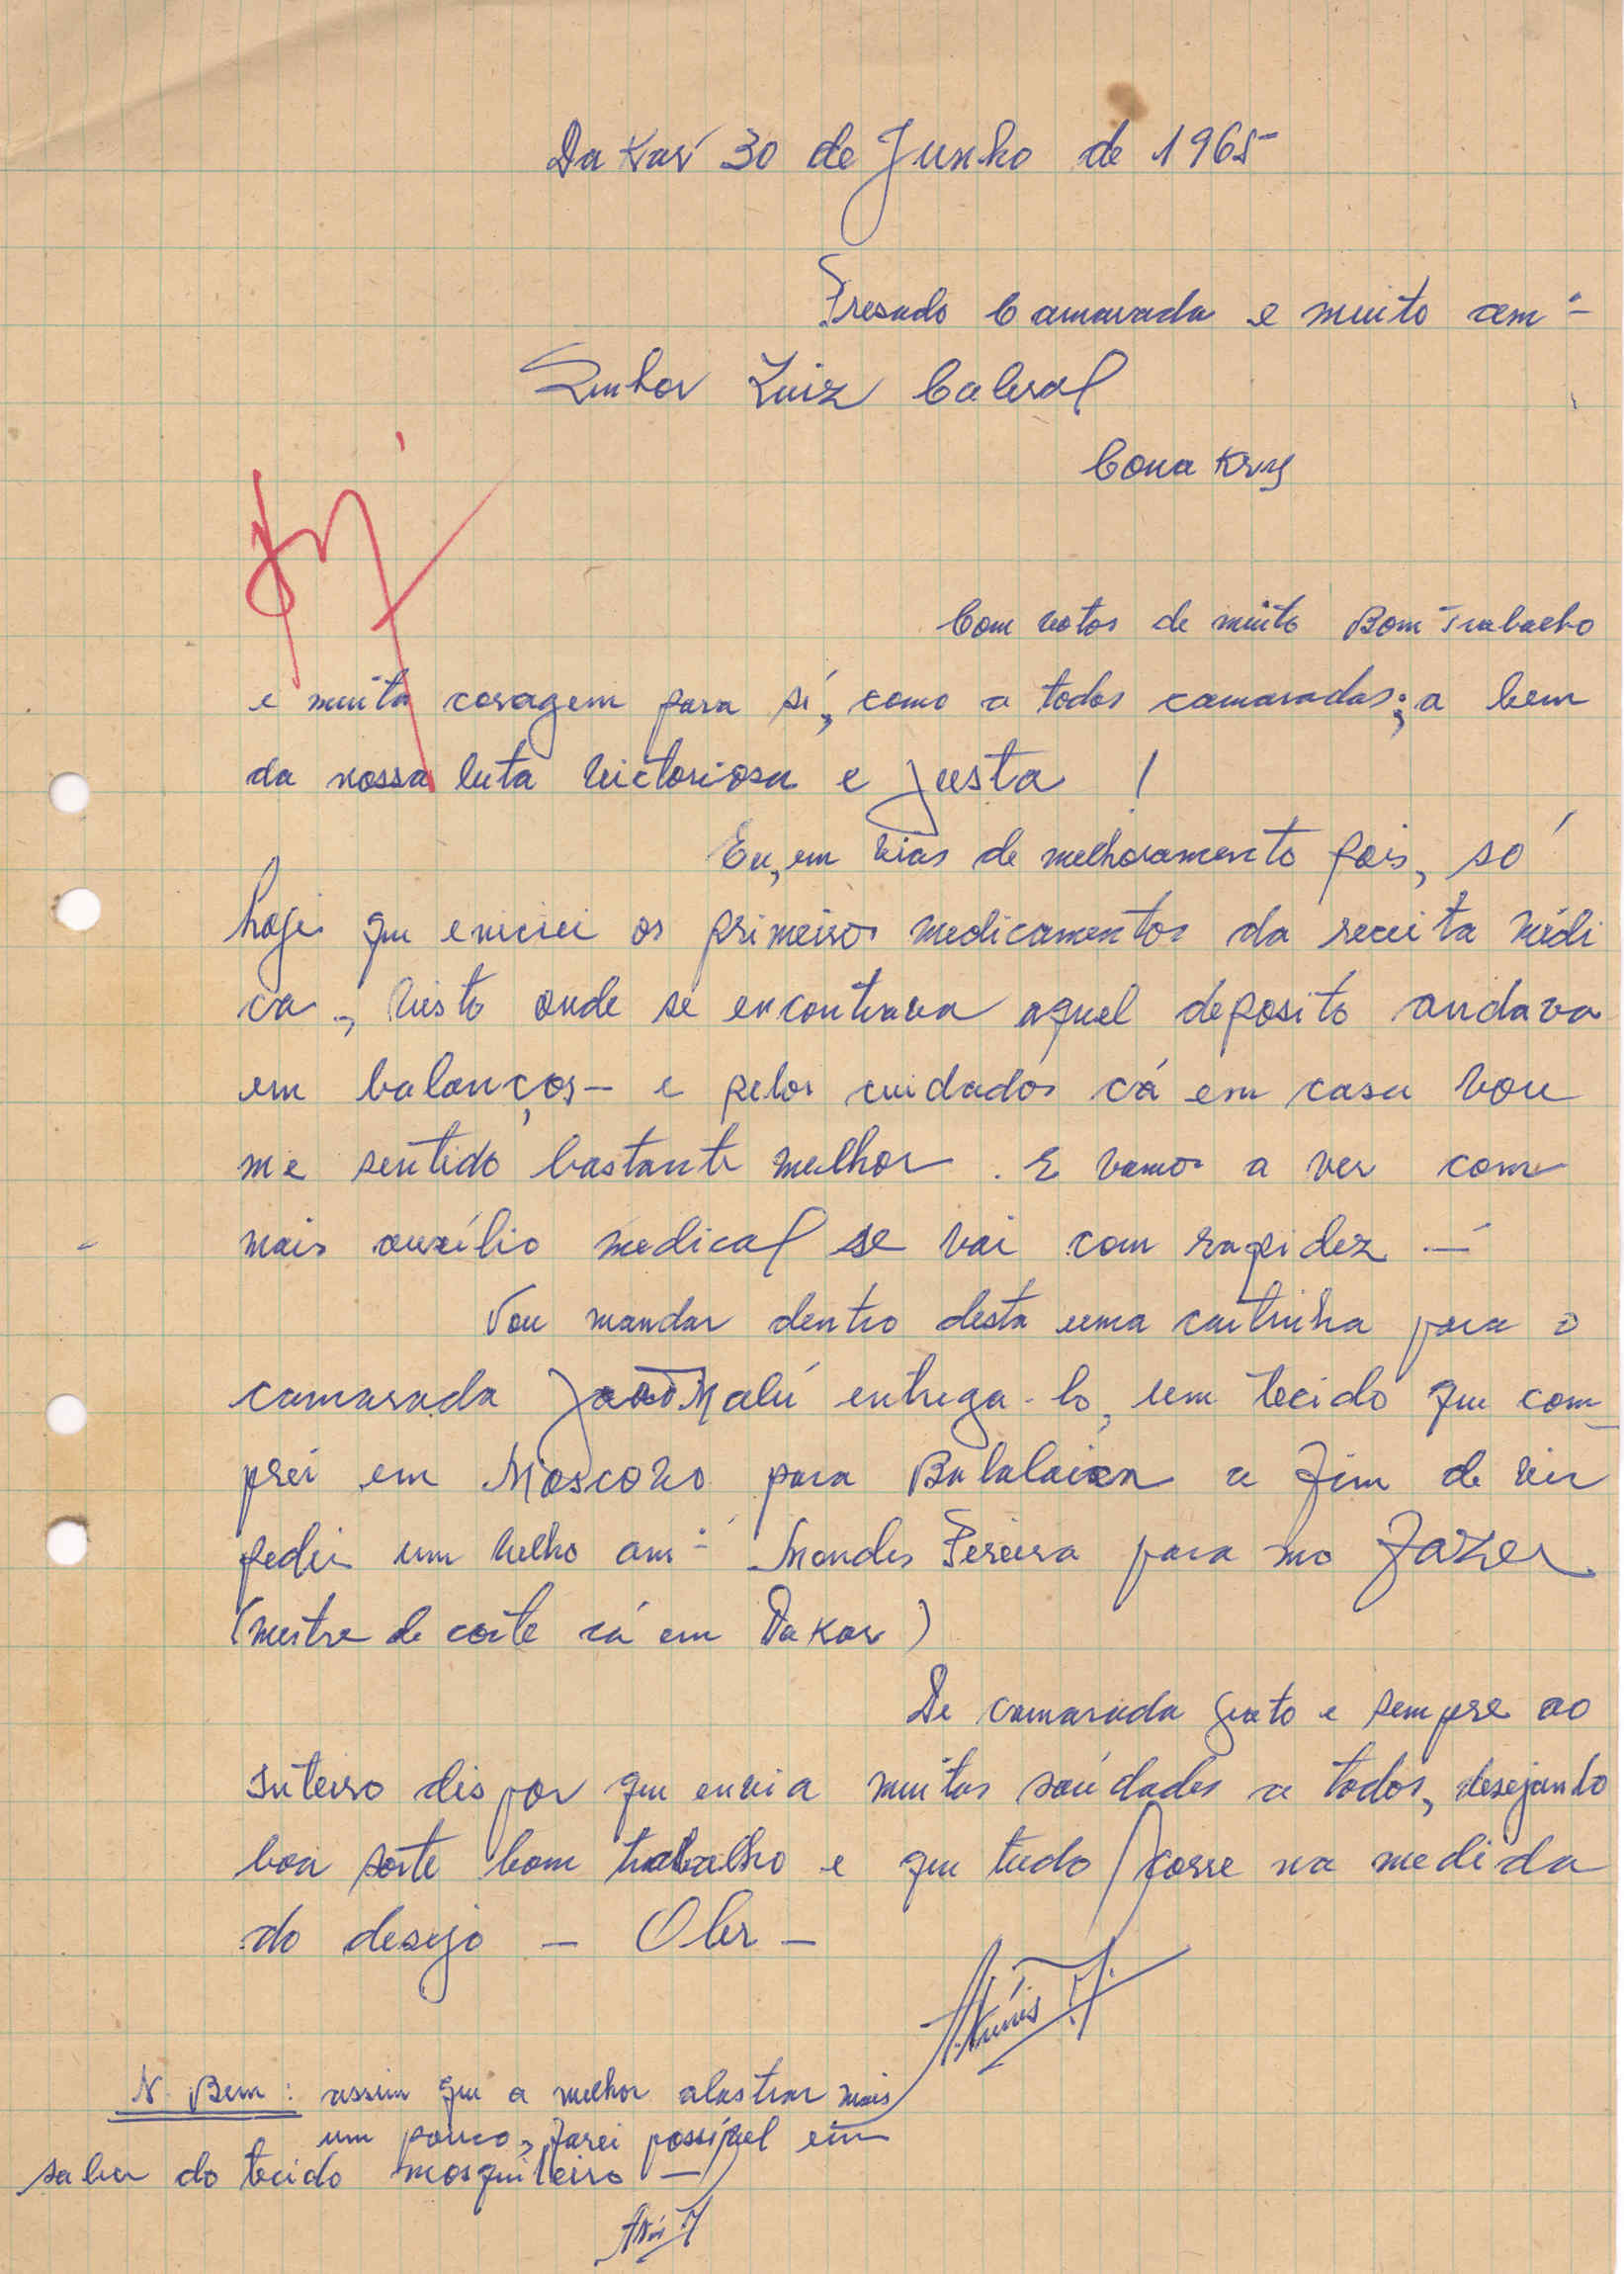 Dakar 30 de Junho de 1965
Presado Camarada e muito amº
Senhor Luiz Cabral
Conakry
Com votos de muito Bom Trabalho
e muita coragem para sí, como a todos camaradas; a bem
da nossa luta victoriosa e justa !
Eu, em vias de melhoramento pois, só
hoje que eniciei os primeiros medicamentos da receita médi
ca, visto onde se encontrava aquel deposito andava
em balanços – e pelos cuidados cá em casa vou
me sentido bastante melhor. E vamos a ver com
mais auxílio medical se vai com rapidez –
Vou mandar dentro desta uma cartinha para o
camarada João Malú entrega-lo, um tecido que com
prei em Moscovo para Balalaica a fim de vir
pedir um velho amº Mendes Pereira para mo fazer
(mestre de corte cá em Dakar)
De camarada grato e sempre ao
inteiro dispor que envia muitas saúdades a todos, desejando
boa sorte bom trabalho e que tudo fosse na medida
do desejo – Obr –
N. Bem: assim que a melhor alastrar mais
um pouco, farei possível em
saber do tecido mosquiteiro –